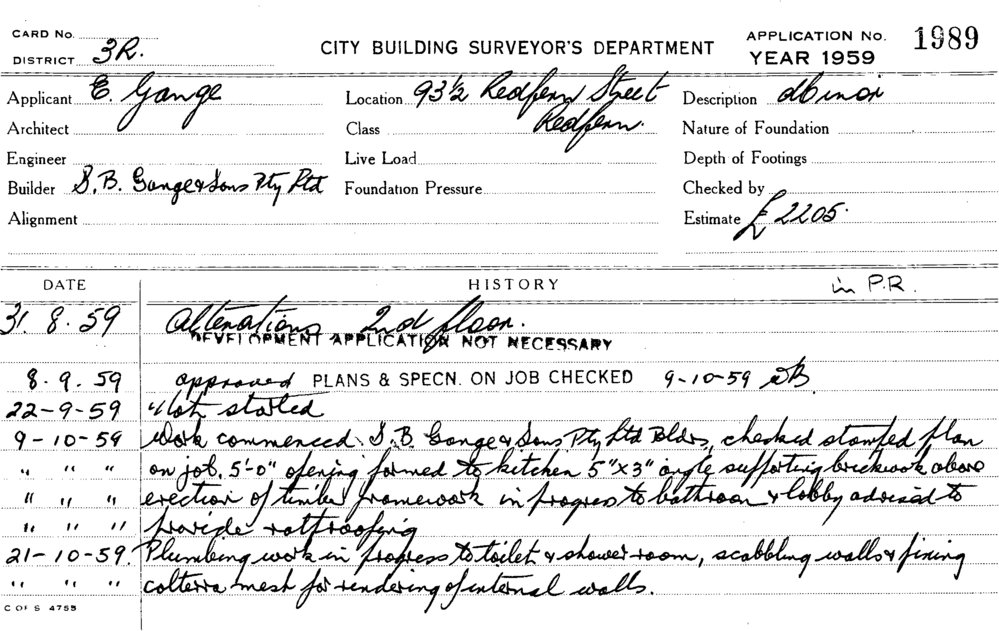 CARD No.
DISTRICT 3R.
CITY BUILDING SURVEYOR'S DEPARTMENT
APPLICATION No. 1989
YEAR 1959
Applicant E. Gange
Location 93½ Redfern Street
Redfern.
Description Minor
Architect
Class
Nature of Foundation
Engineer
Live Load
Depth of Footings
Builder S. B. Gange & Sons Pty Ltd
Foundation Pressure
Checked by
Alignment
Estimate £2205.
DATE HISTORY in P.R.
31. 8. 59 Alterations 2nd floor.
DEVELOPMENT APPLICATION NOT NECESSARY
8. 9. 59 approved PLANS & SPECN. ON JOB CHECKED 9-10-59
22-9-59 Not started
9-10-59 Work commenced. S. B. Gange & Sons Pty Ltd Bldrs, checked stamped plan
" " " on job. 5'-0" opening formed to kitchen 5"x3" angle supporting brickwork above
" " " erection of timber framework in progress to bathroom & lobby advised to
" " " provide ratproofing
21-10-59. Plumbing work in progress to toilet & shower room, scabbling walls & fixing
" " " colterra mesh for rendering of internal walls.
C OF S 4755